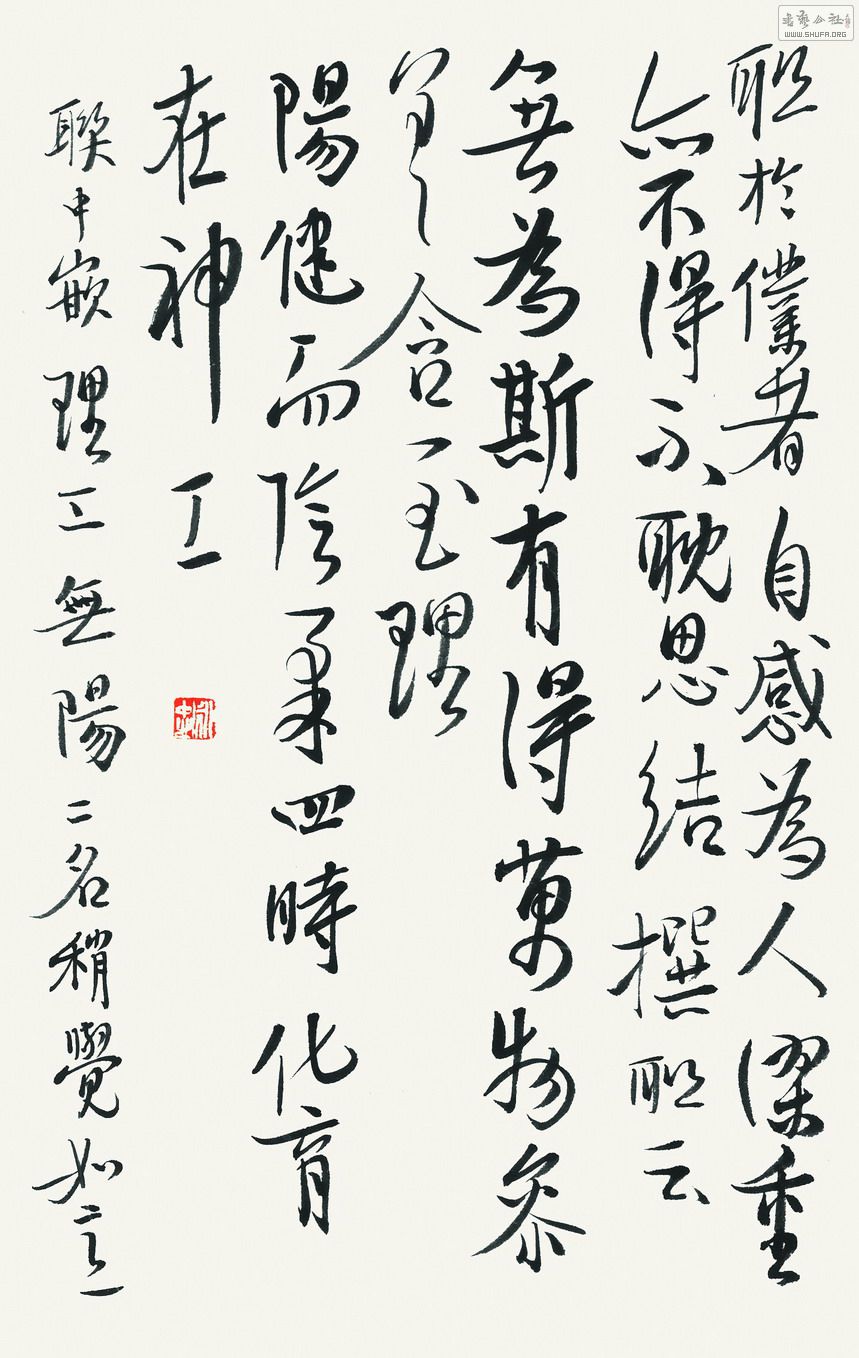 書藝公社
WWW.SHUFA.ORG
联於僕者自感為人謬重
亦不得不耽思結撰联云
無為斯有得萬物參
差合至理
陽健而陰柔四時化育
在神工
聯中嵌理工無陽二名稍覺如意